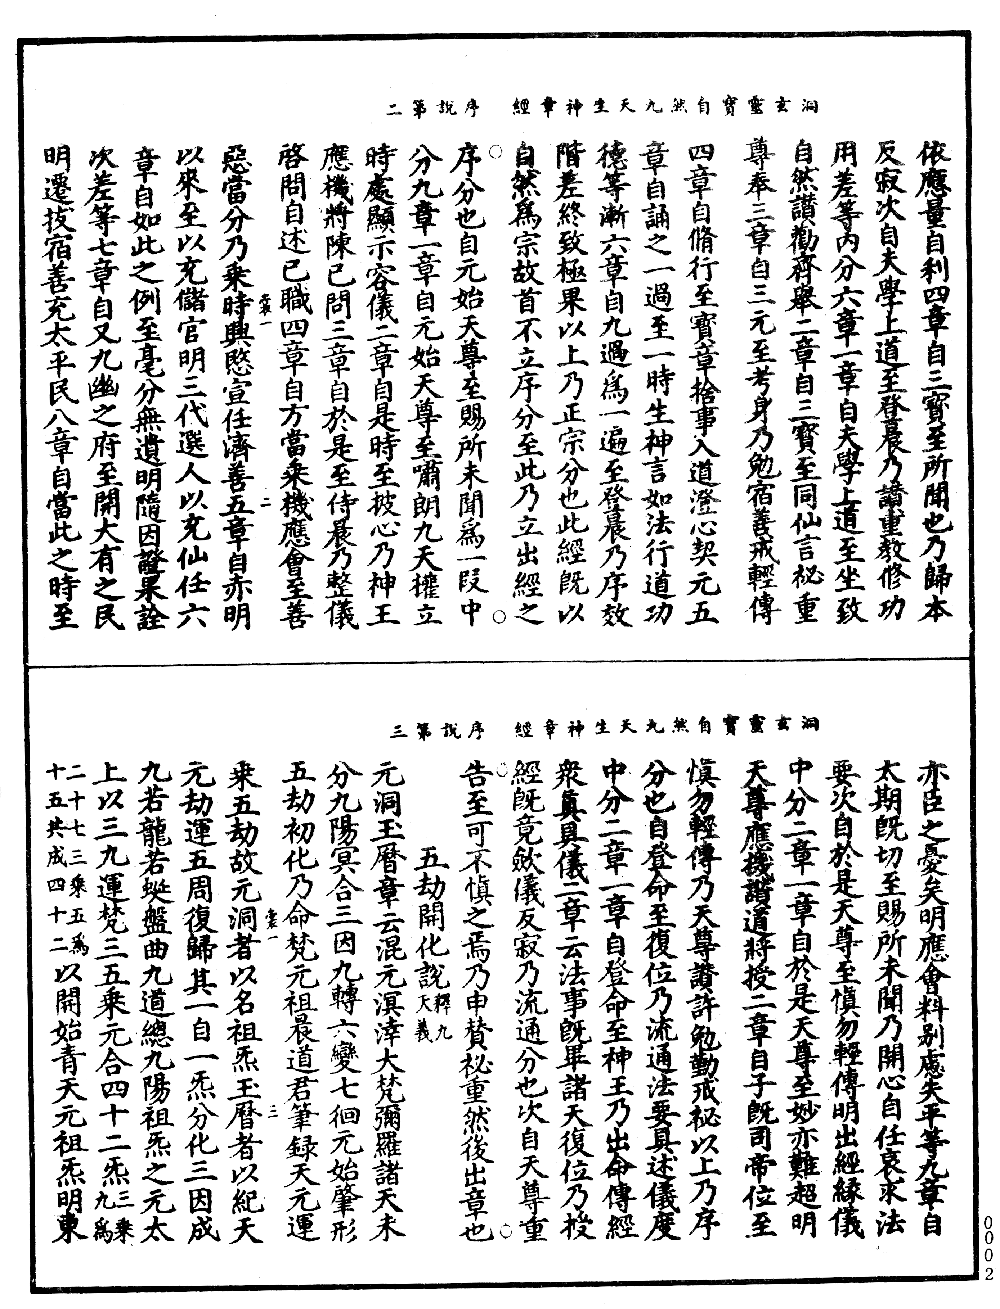 洞玄靈寶自然九天生神章經　序說第二
依應量自利四章自三寶至所聞也乃歸本
反寂次自夫學上道至登晨乃讀重教修功
用差等內分六章一章自夫學上道至坐致
自然讚勸齊舉二章自三寶至同仙言祕重
尊奉三章自三元至考身乃勉宿善戒輕傳
四章自脩行至寶章捨事入道澄心契元五
章自誦之一過至一時生神言如法行道功
德等漸六章自九過爲一遍至登晨乃序效
階差終致極果以上乃正宗分也此經既以
自然爲宗故首不立序分至此乃立出經之
序分也自元始天尊至賜所未聞爲一段中
分九章一章自元始天尊至嘯朗九天權立
時處顯示容儀二章自是時至披心乃神王
應機將陳已問三章自於是至侍晨乃整儀
啓問自述已職四章自方當乘機應會至善
惡當分乃乘時興愍宣任濟善五章自亦明
以來至以充儲官明三代選人以充仙任六
章自如此之例至毫分無遺明隨因證果詮
次差等七章自又九幽之府至開大有之民
明遷拔宿善充太平民八章自當此之時至
洞玄靈寶自然九天生神章經　序說第三
亦臣之憂矣明應會料別慮失平等九章自
太期既切至賜所未聞乃開心自任哀求法
要次自於是天尊至愼勿輕傳明出經緣儀
中分二章一章自於是天尊至妙亦難超明
天尊應機讚道將授二章自子既司帝位至
愼勿輕傳乃天尊讚許勉勤戒祕以上乃序
分也自登命至復位乃流通法要具述儀度
中分二章一章自登命至神王乃出命傳經
衆眞具儀二章云法事既畢諸天復位乃授
經既竟斂儀反寂乃流通分也次自天尊重
告至可不愼之焉乃申贊祕重然後出章也
五劫開化說釋九天義
元洞玉曆章云混元溟涬大梵彌羅諸天未
分九陽冥合三因九轉六變七徊元始肇形
五劫初化乃命梵元祖晨道君筆錄天元運
乘五劫故元洞者以名祖炁玉曆者以紀天
元劫運五周復歸其一自一炁分化三因成
九若龍若蜒盤曲九道總九陽祖炁之元太
上以三九運梵三五乘元合四十二炁三乘九爲
二十七三乘五爲十五共成四十二以開始青天元祖炁明東
0002